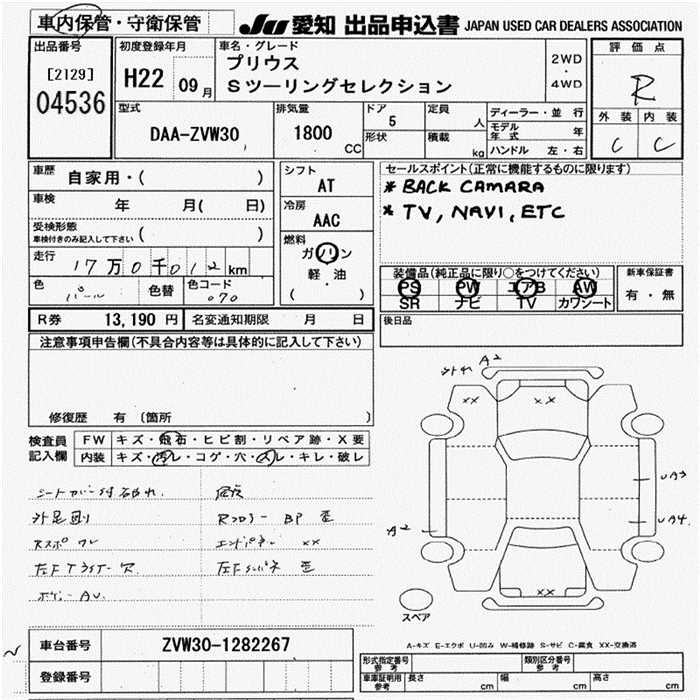 車内保管・守衛保管
JU 愛知 出品申込書 JAPAN USED CAR DEALERS ASSOCIATION
出品番号
[2129]
04536
初度登録年月
H22 09月
車名・グレード
プリウス
Sツーリングセレクション
2WD
・
4WD
評価点
R
外装 内装
C C
型式
DAA-ZVW30
排気量
1800 CC
ドア
5
形状
定員
人
積載
kg
ディーラー・並行
モデル年式 年
ハンドル 左・右
車歴 自家用・( )
車検 年 月( 日)
受検形態
車検付きのみ記入して下さい ( )
走行 17万0千012km
色 パール 色替 色コード 070
シフト
AT
冷房
AAC
燃料
ガソリン
軽・油
( )
セールスポイント(正常に機能するものに限ります)
* BACK CAMARA
* TV, NAVI, ETC
装備品(純正品に限り○をつけてください)
PS PW エアB AW
SR ナビ TV カワシート
新車保証書
有・無
R券 13,190円 名変通知期限 月 日
後日品
注意事項申告欄(不具合内容等は具体的に記入して下さい)
修復歴 有 (箇所 )
検査員記入欄
FW キズ・飛石・ヒビ割・リペア跡・X要
内装 キズ・汚レ・コゲ・穴・スレ・キレ・破レ
外レ A2
XX XX
UA3
A2 UA4
XX
スペア
Rフロアー BP 歪
エンドパネル XX
A-キズ E-エクボ U-凹み W-補修跡 S-サビ C-腐食 XX-交換済
車台番号 ZVW30-1282267
登録番号
形式指定番号 参考 類別区分番号 参考
車庫証明用 参考 長さ cm 幅 cm 高さ cm